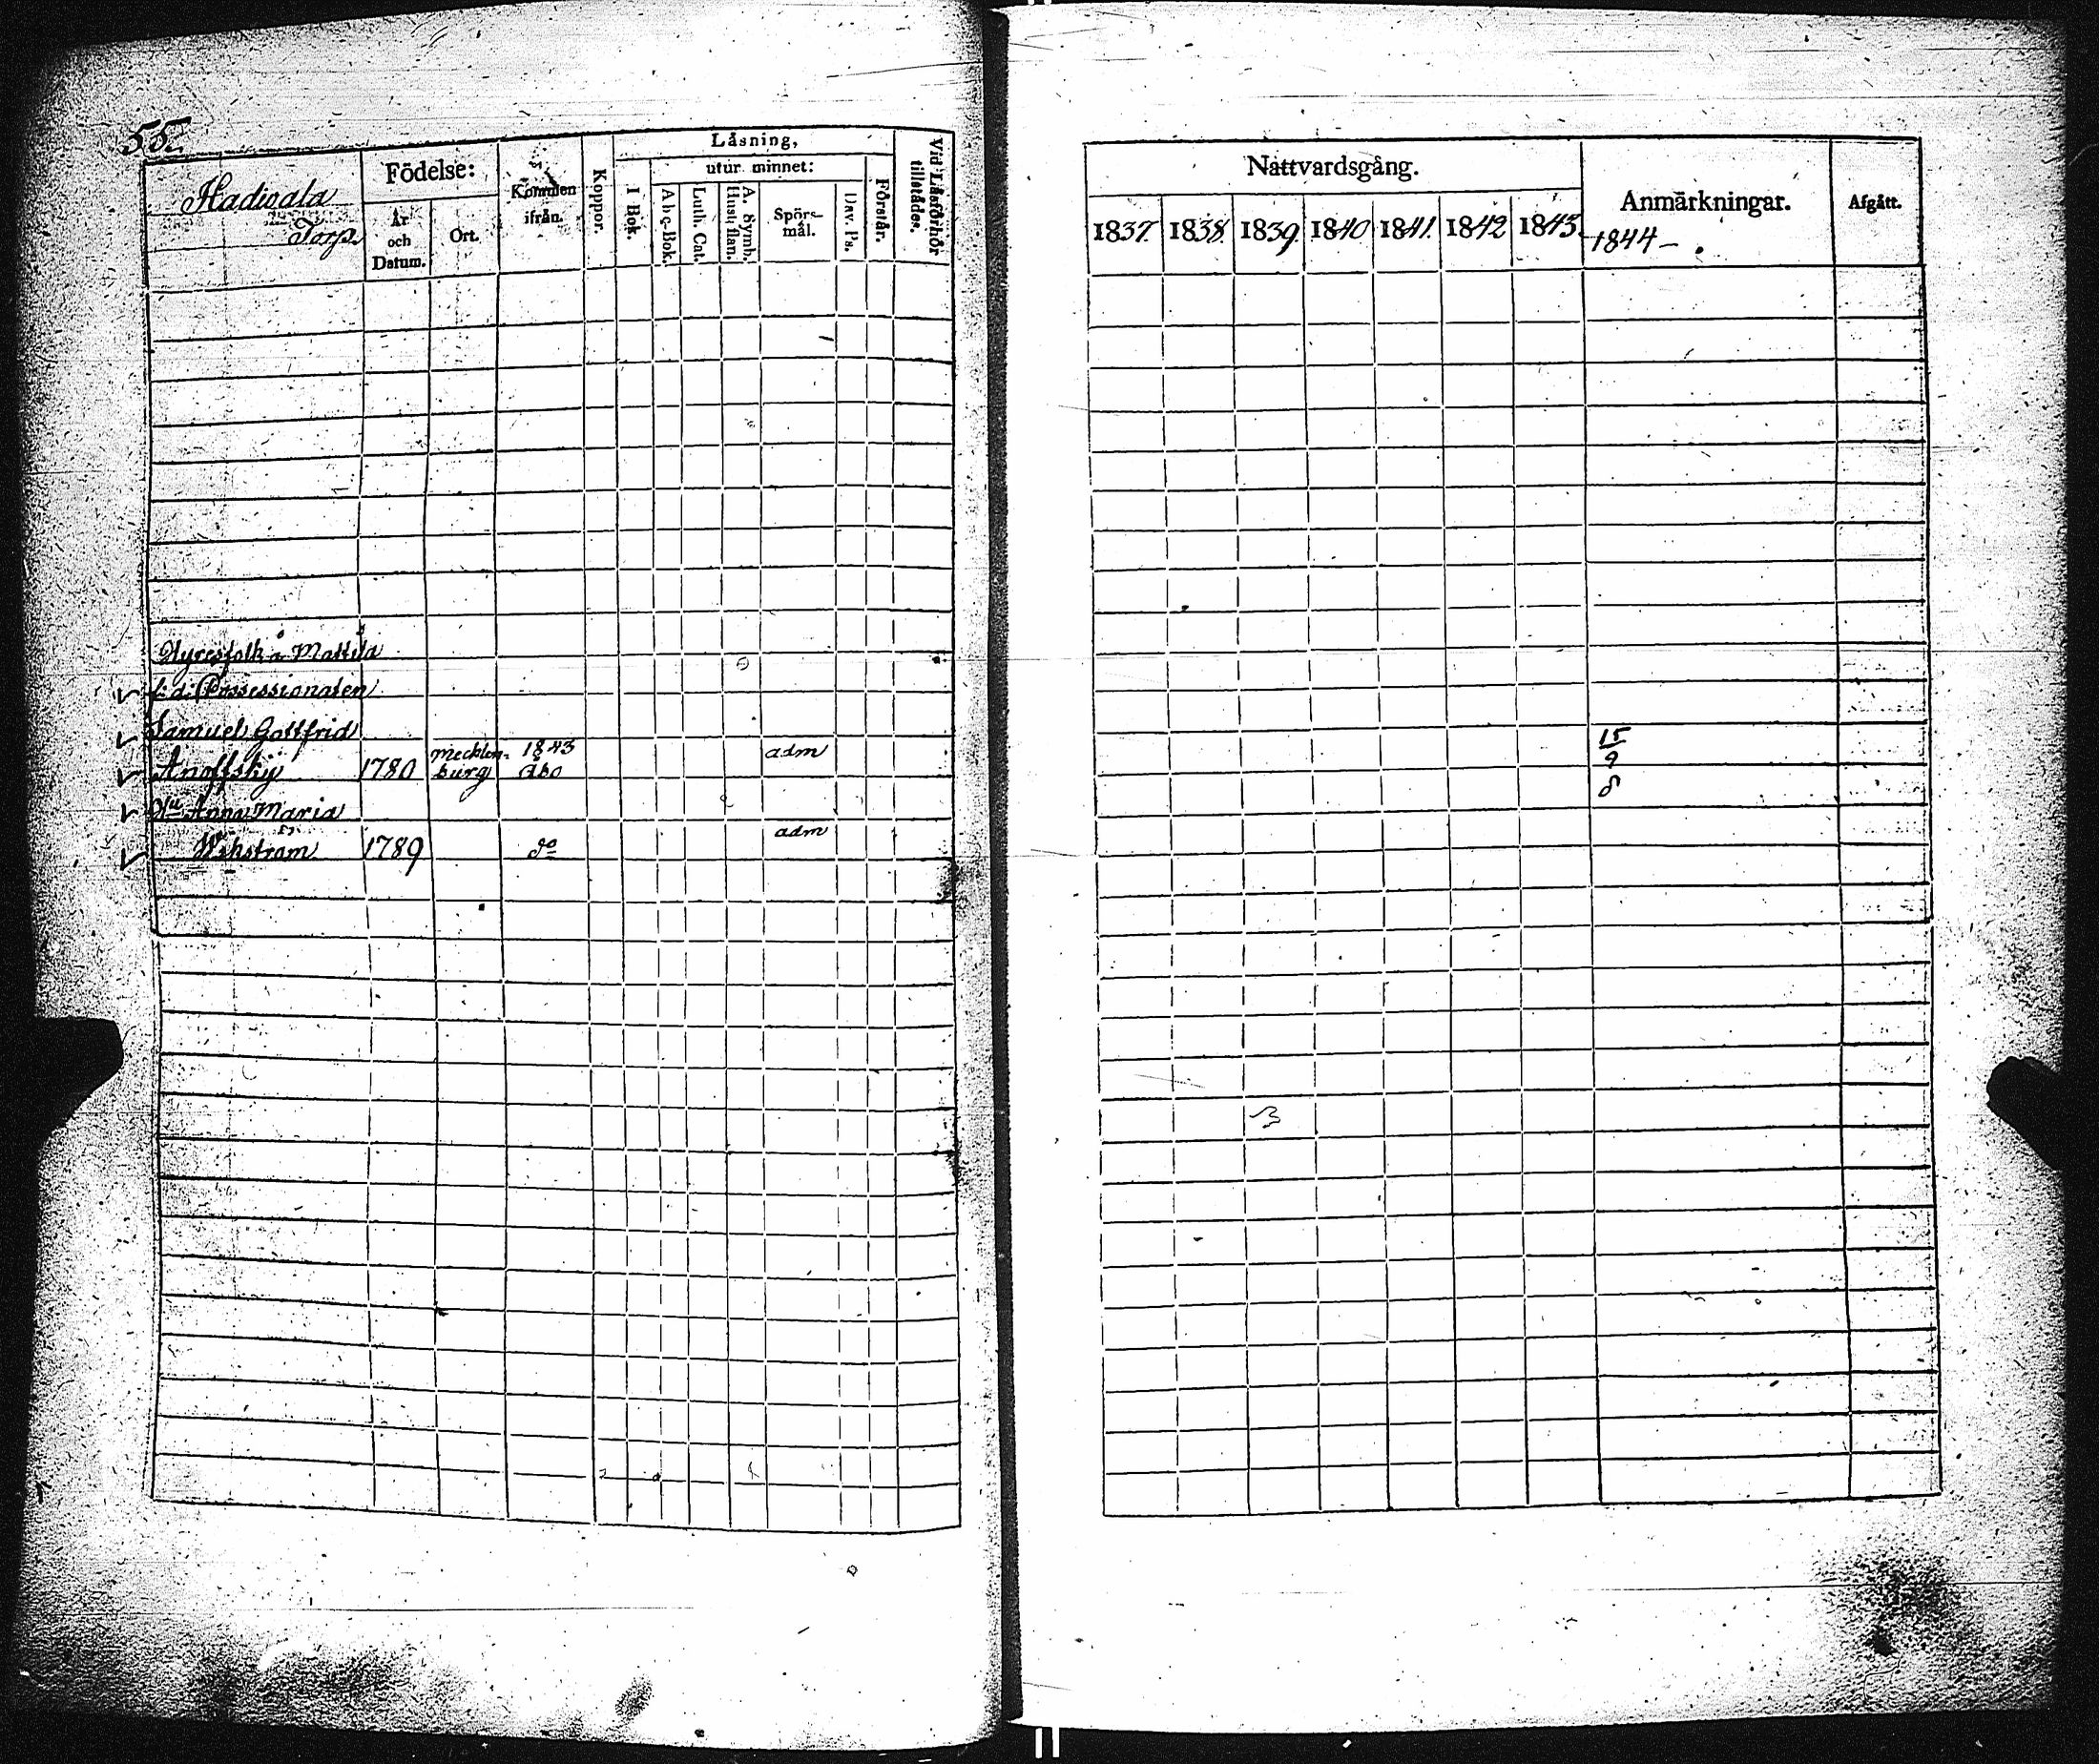 55.
Hadvala
Torp.
Födelse:
År och Datum.
Ort.
Kommen ifrån.
Koppor.
Läsning,
I Bok.
utur minnet:
Abc-Bok.
Luth. Cat.
A. Symb. Hustaflan.
Spörsmål.
Dav. Ps.
Förstår.
Vid Läsförhör tillstädes.
Nattvardsgång.
1837. 1838. 1839. 1840 1841. 1842 1843.
Anmärkningar.
1844 –
Afgått.
Hyresfolk å Mattila
f.d. Possessionaten
Samuel Gottfrid
Anoffsky 1780 Mecklenburg 1843 Åbo adm 15/9
8
Hu Anna Maria
Wikström 1789 do adm